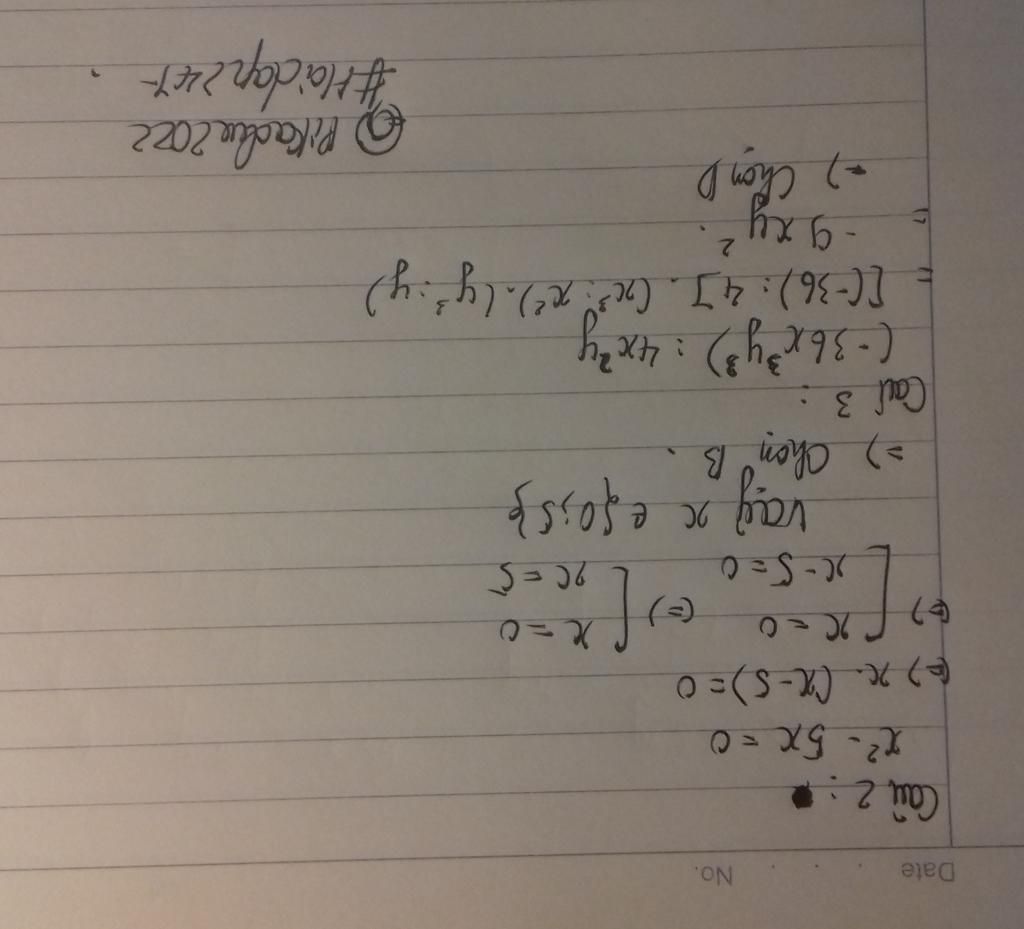 Date . . . No.
Câu 2 :
x² - 5x = 0
(=) x. (x - 5) = 0
(=) [ x = 0 (=) [ x = 0
x - 5 = 0 x = 5
Vậy x e {0; 5}
=) Chọn B.
Câu 3 :
(-36x³y³) : 4x²y
= [(-36) : 4] . (x³ : x²) . (y³ : y)
= -9xy².
=) Chọn D
@ Pikachu2022
#Hoidap247.